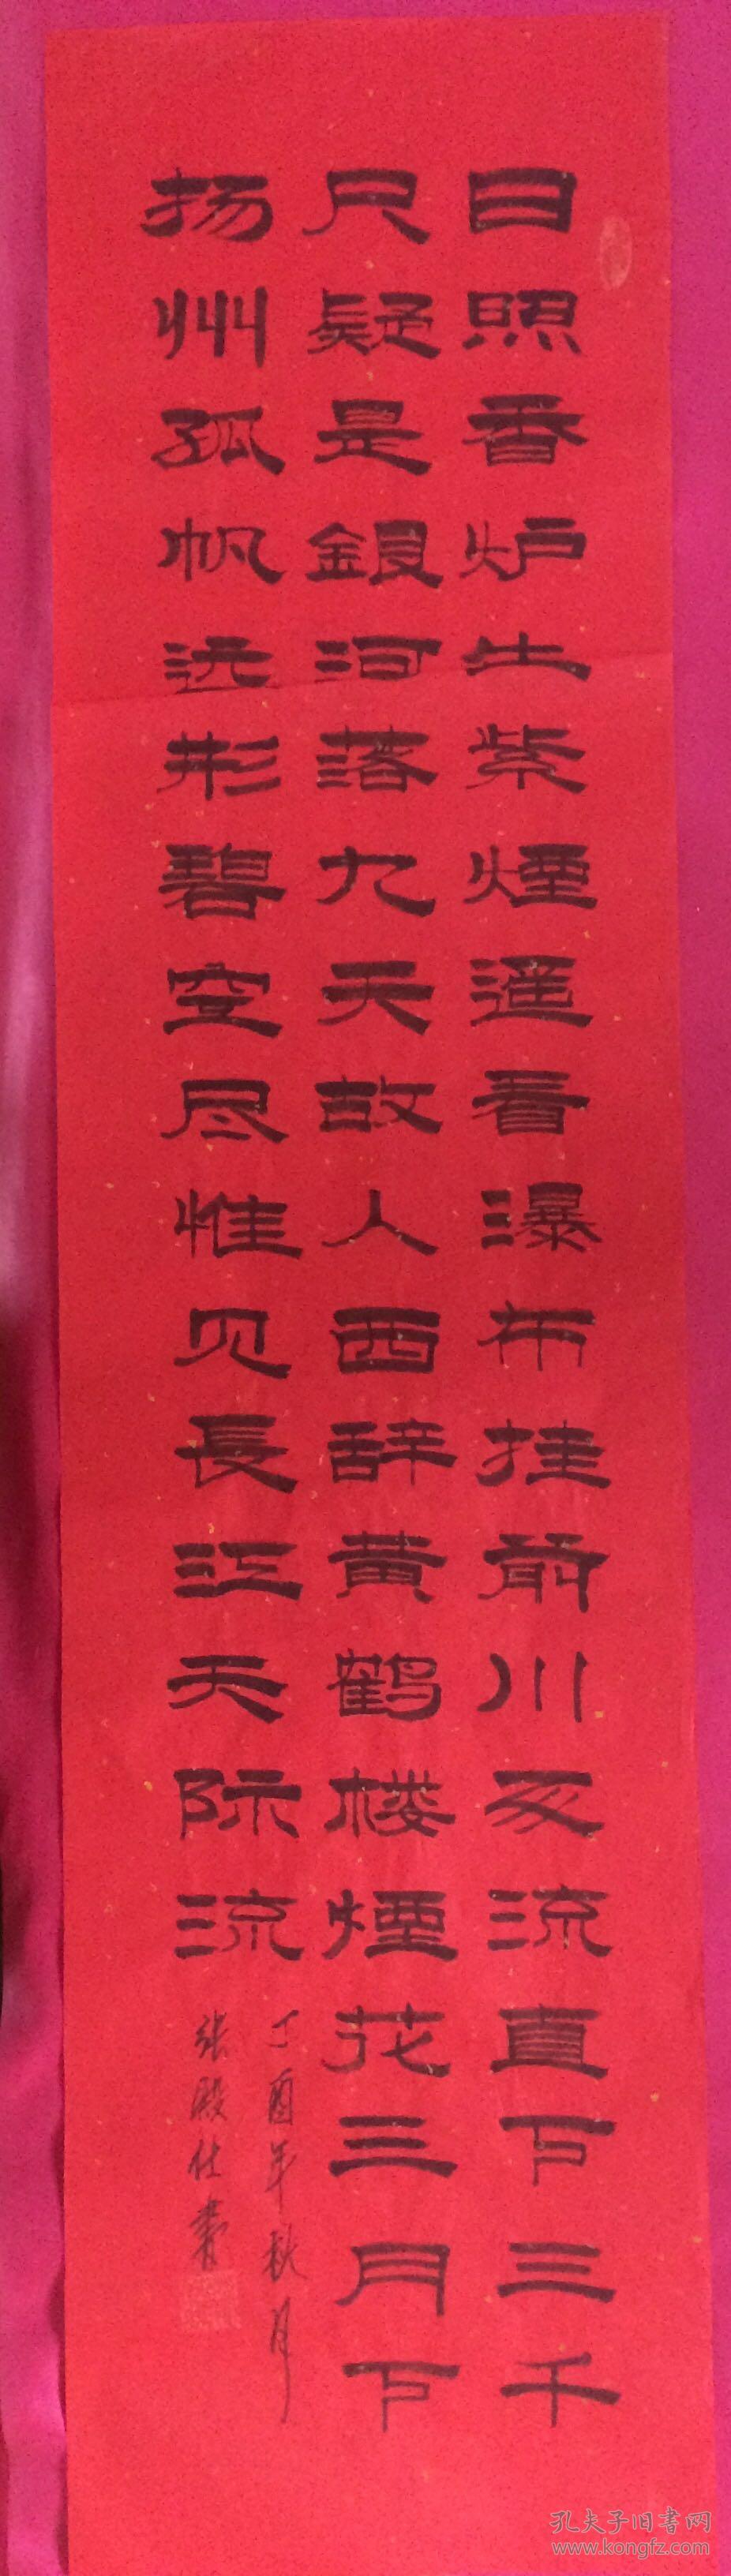 日照香炉出紫煙遥看瀑布挂前川飞流直下三千
尺疑是銀河落九天故人西辞黄鹤楼煙花三月下
扬州孤帆远形碧空尽惟见長江天际流
丁酉年秋月
张殿仕書
孔夫子旧书网
www.kongfz.com